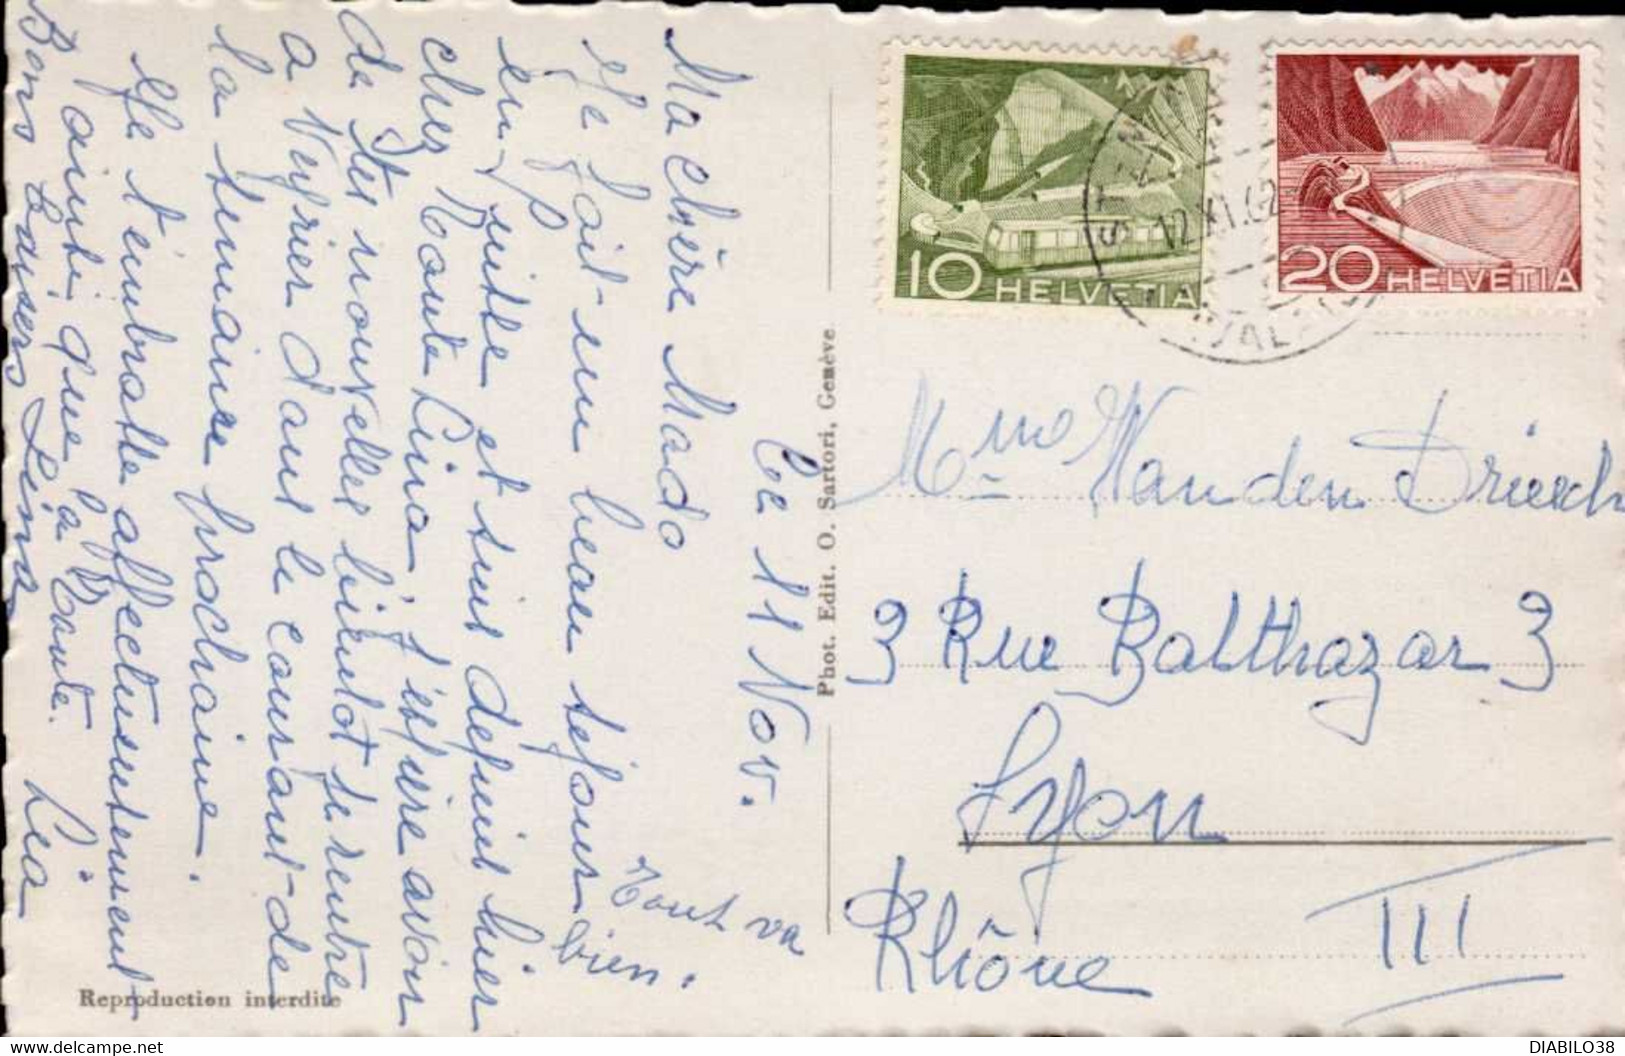 Le 11 Nov.
Ma chère Mado
J'ai fait un beau séjour
en
suite et suis depuis hier
chez Tante Lina, j'espère avoir
de tes nouvelles bientôt je rentre
à Veyrier dans le courant de
la semaine prochaine.
Je t'embrasse affectueusement
ainsi que la Tante. Léa
Bons baisers Lina
Tout va
bien.
Reproduction interdite
Phot. Edit. O. Sartori, Genève
10 HELVETIA
20 HELVETIA
12.XI.62
(VALAIS)
Mme Vanden Driesch
3 Rue Balthazar 3
Lyon
III
Rhône
DIABILO38